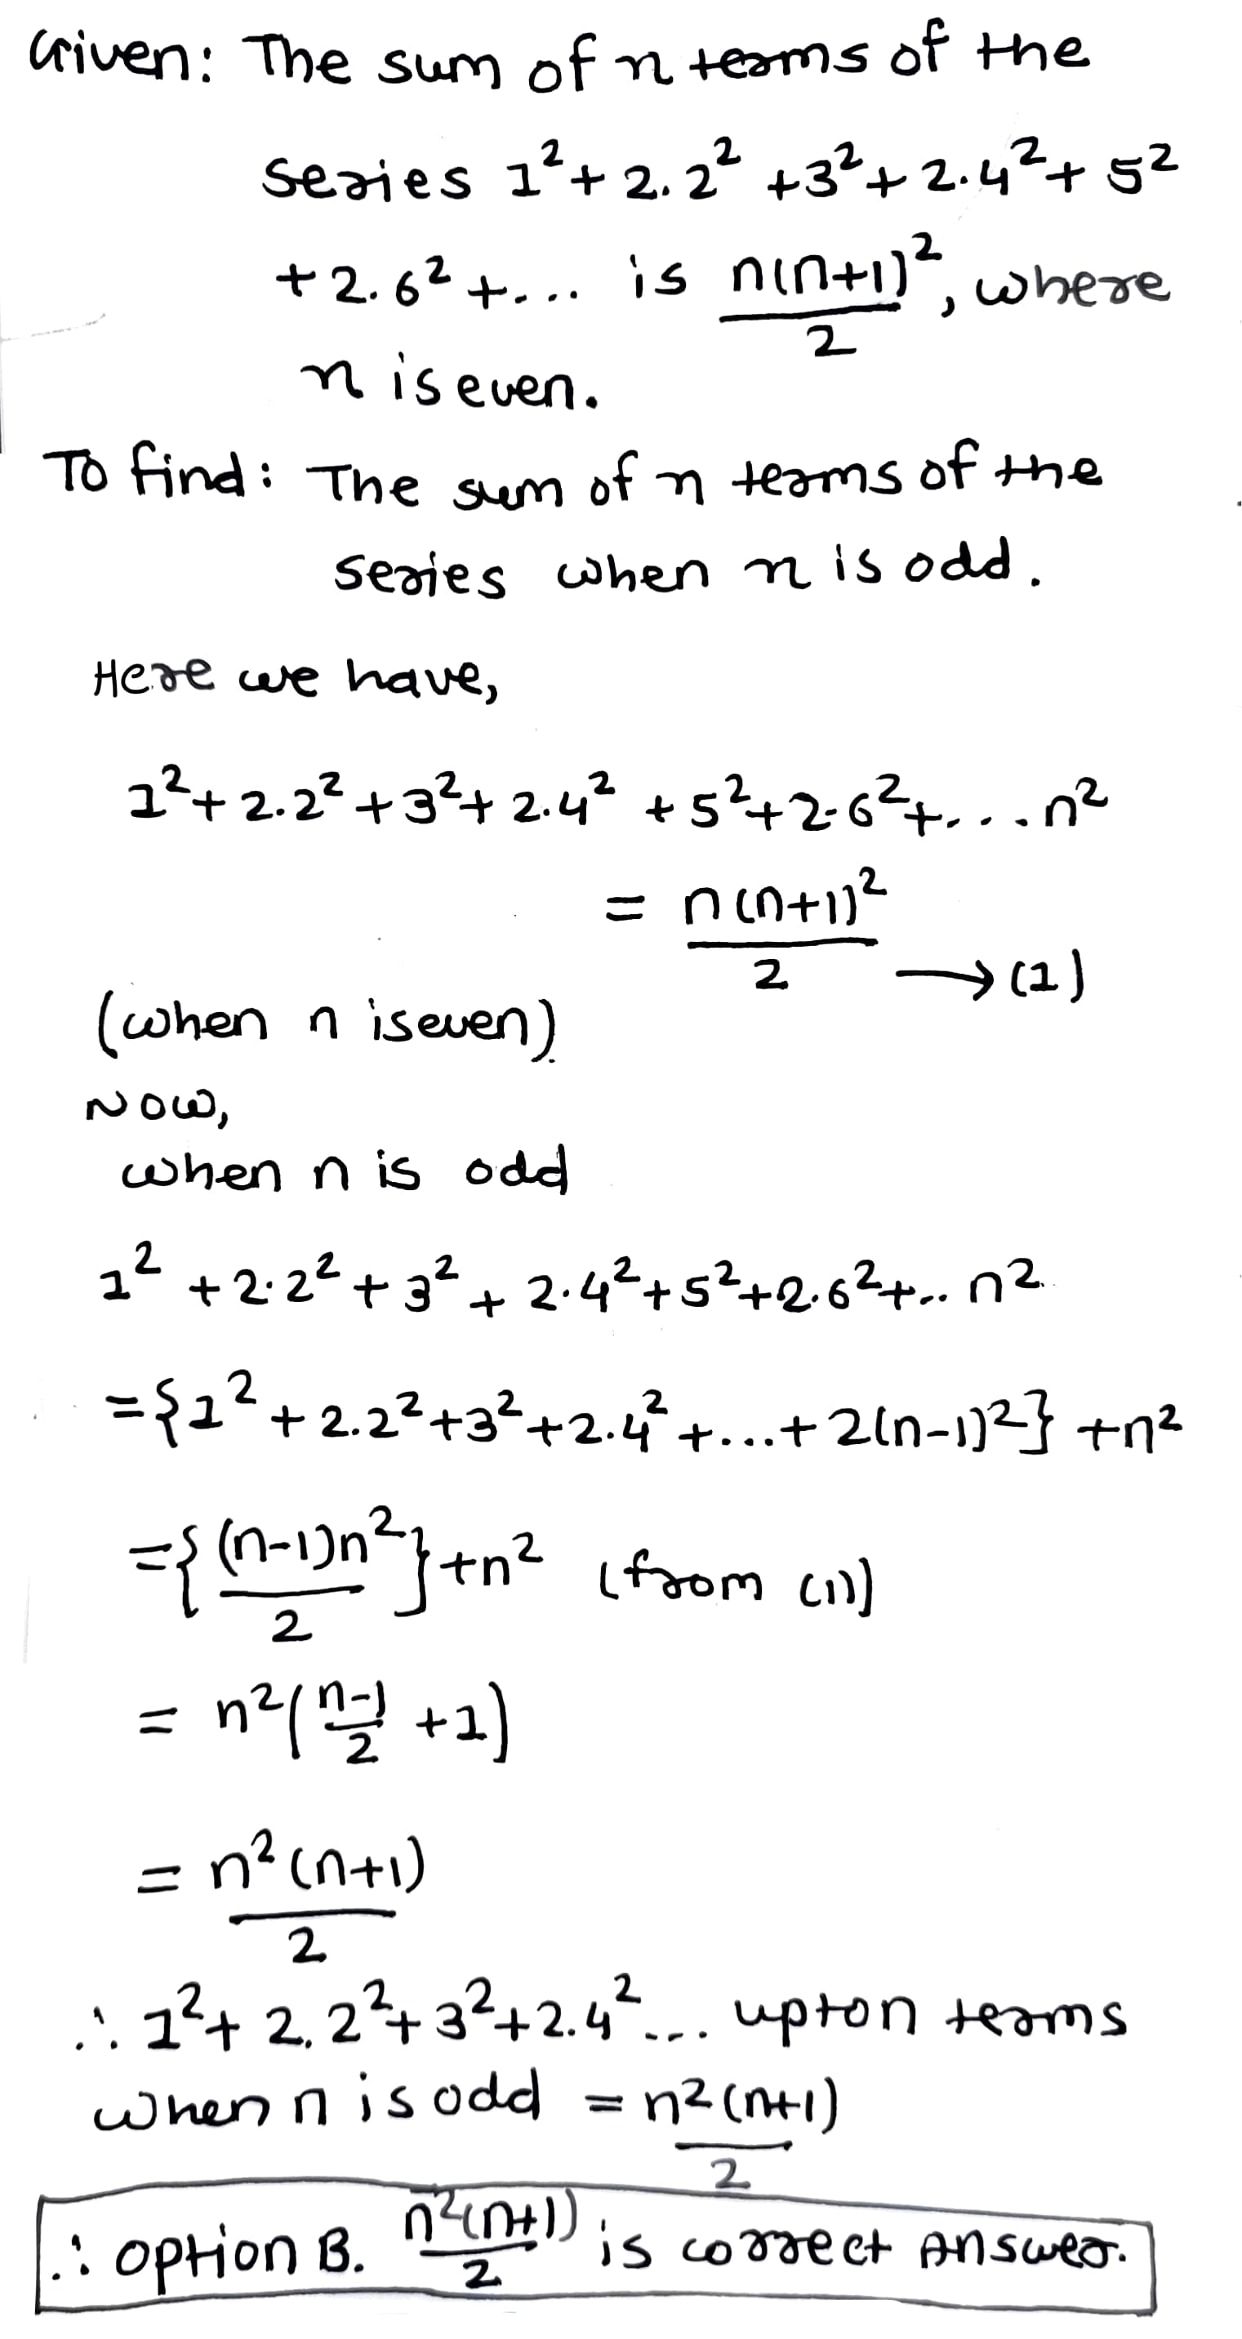 Given: The sum of n terms of the
series 1²+ 2. 2² +3²+ 2.4²+ 5²
+2. 6² +... is n(n+1)²/2, where
n is even.
To find: The sum of n terms of the
series when n is odd.
Here we have,
1²+ 2.2² +3²+ 2.4² +5²+2.6²+...n²
= n(n+1)²/2 → (1)
(when n is even)
Now,
when n is odd
1² +2.2² + 3² + 2.4²+5²+2.6²+.. n²
={1² + 2.2²+3²+2.4² +...+ 2(n-1)²} +n²
={(n-1)n²/2}+n² (from (1))
= n²(n-1/2 +1)
= n²(n+1)/2
∴ 1²+ 2. 2²+ 3²+2.4² ... upton terms
when n is odd = n²(n+1)/2
∴ option B. n²(n+1)/2 is correct Answer.